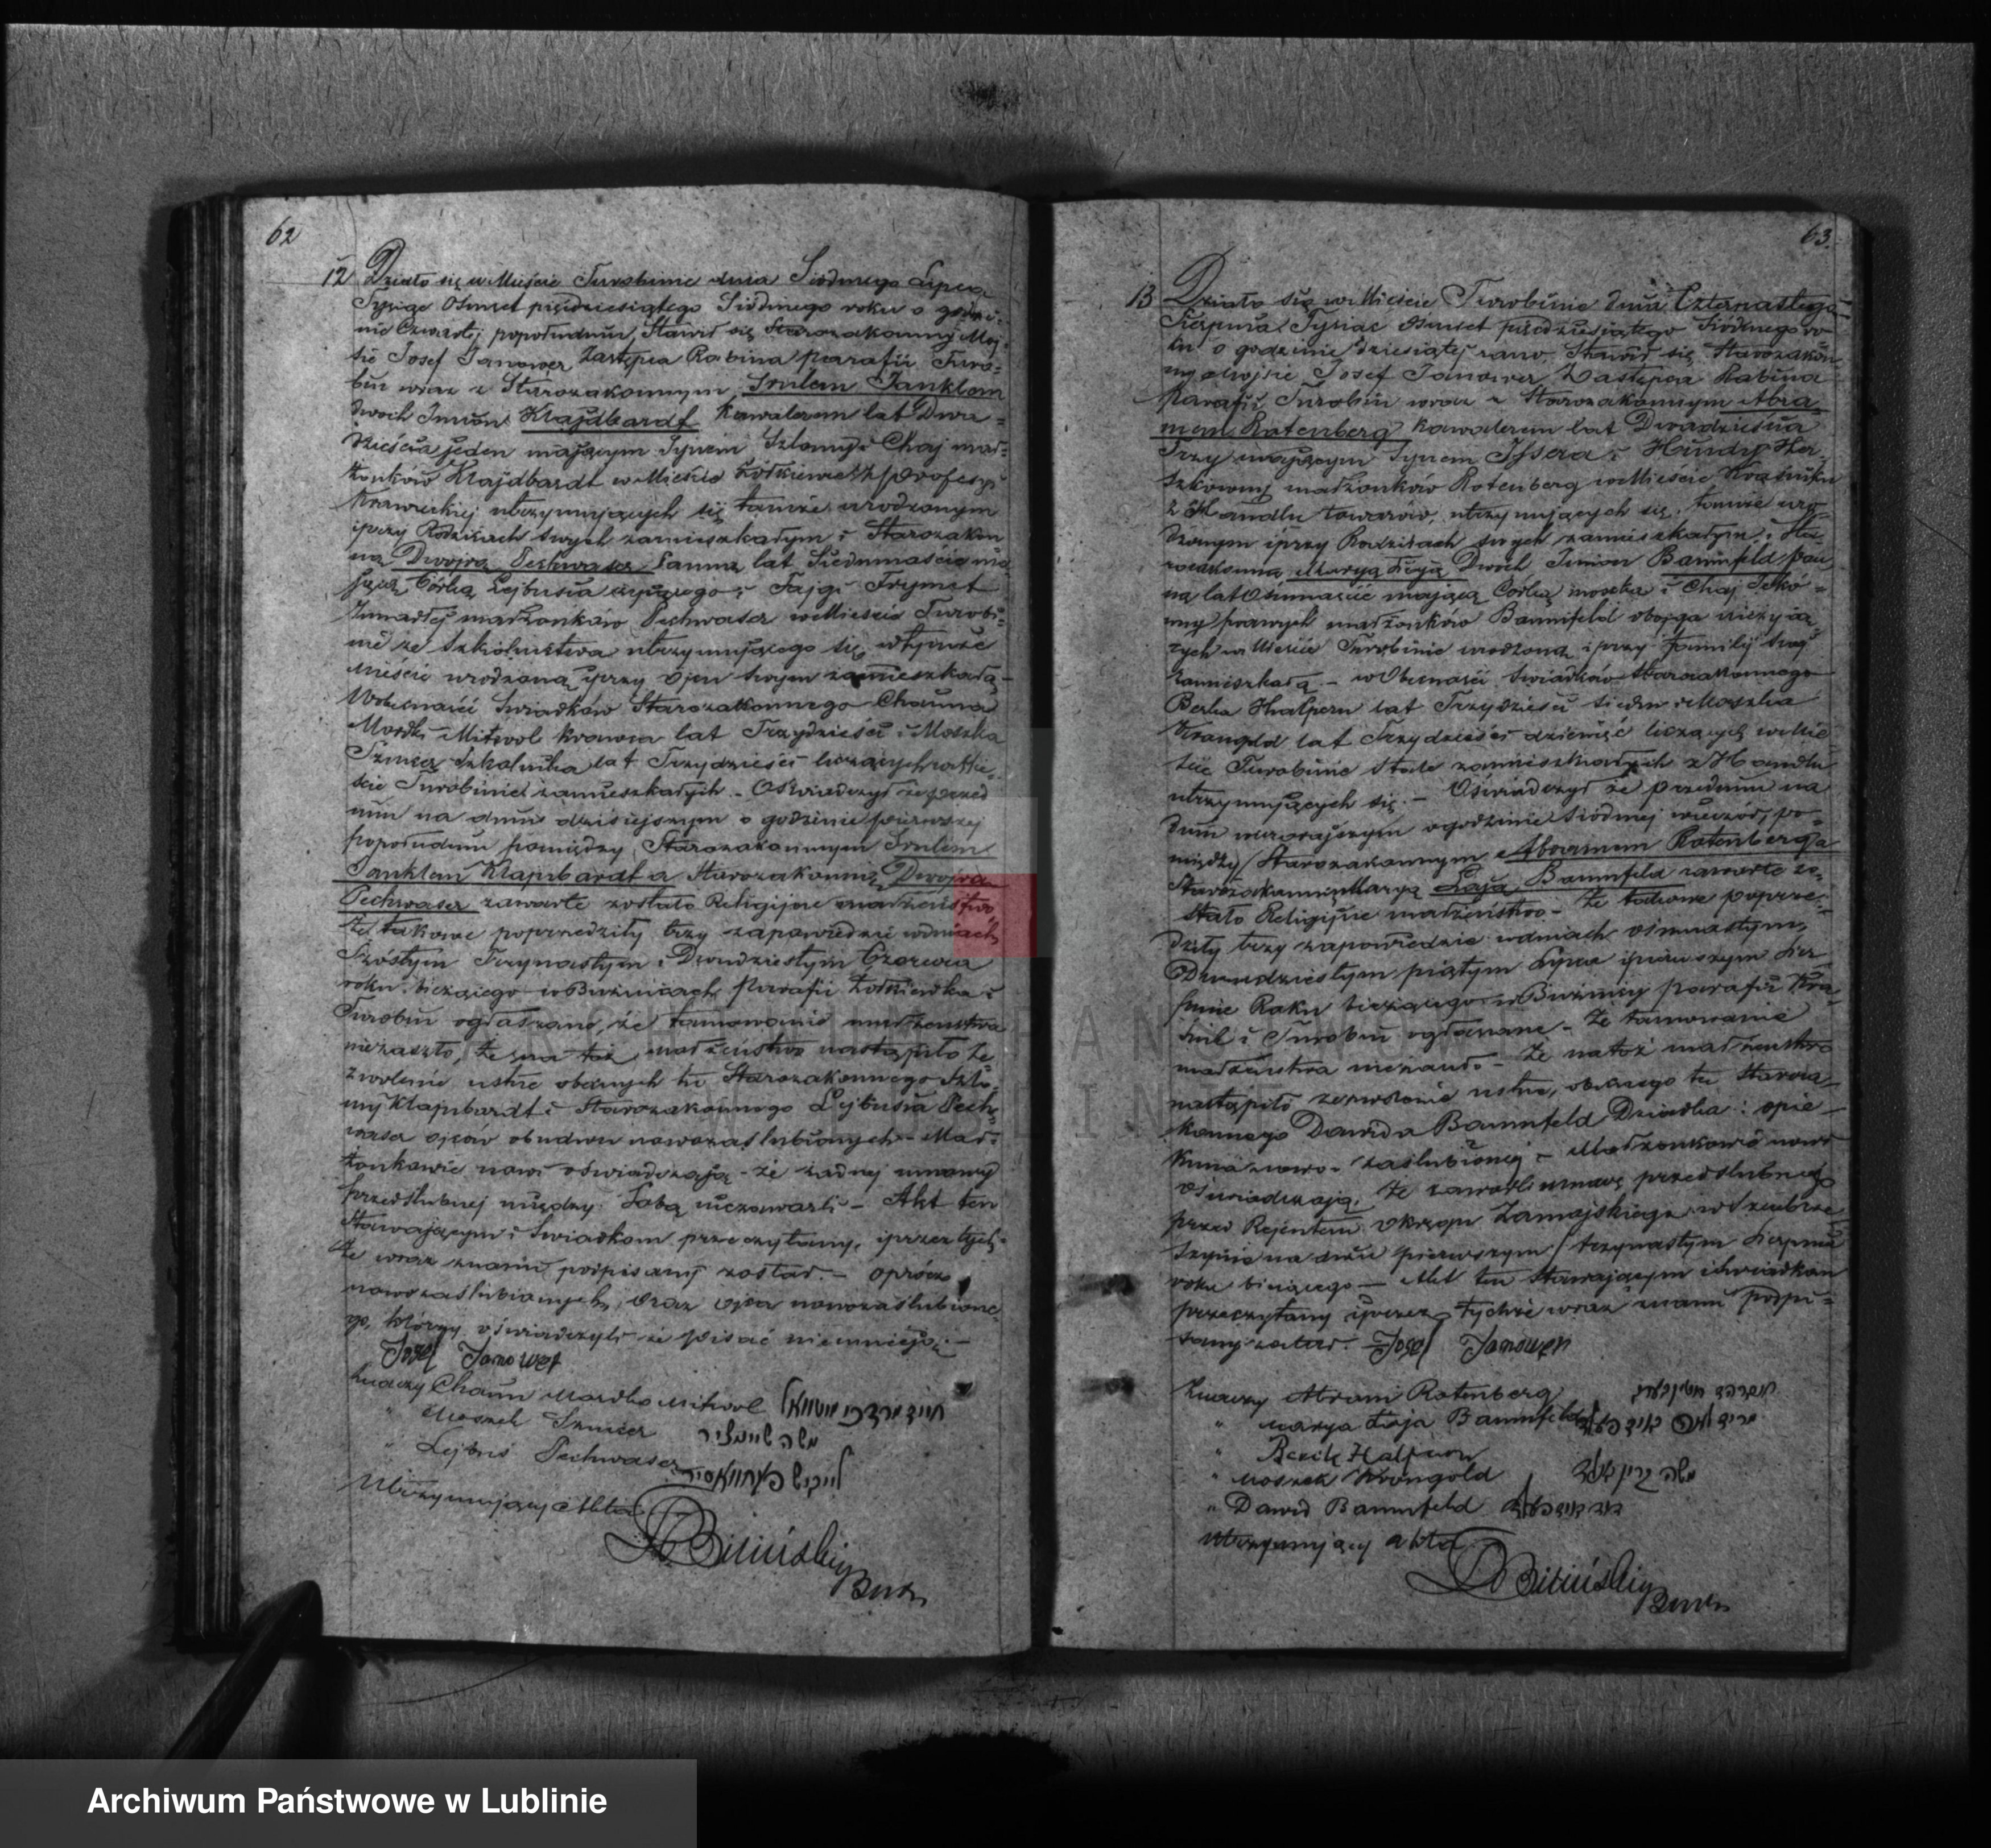 62
12 Działo się w Mieście Turobinie dnia Siódmego Lipca
Tysiąc Ośmset pięćdziesiątego Siódmego roku o godzi-
nie Czwartej popołudniu, Stawił się Starozakonny Moj-
sie Josef Janower Zastępca Rabina parafii Turo-
bin wraz z Starozakonnym Srulem Janklem
dwoch Imion Klajdbardt Kawalerem lat Dwa-
dzieścia jeden mającym Synem Szlomy i Chaj mał-
żonków Klajdbardt w Mieście Żółkiewce z professyi
Krawieckiej utrzymujących się tamże urodzonym
i przy Rodzicach swych zamieszkałym i Starozakon
ną Dwojrą Pechwaser Panną lat Siedmnaście ma
jącą Córką Lejbusia żyjącego i Fajgi Frymet
zmarłej małżonków Pechwaser w Mieście Turobi-
nie ze Szkolnictwa utrzymującego się w tymże
mieście urodzoną i przy Ojcu swym zamieszkałą -
W obecności Swiadków Starozakonnego Chaima
Mordki Mitwol krawca lat Trzydzieści i Moszka
Szmucer Szkolnika lat Trzydzieści liczących w Mie-
ście Turobinie zamieszkałych - Oświadczył że przed
nim na dniu dzisiejszym o godzinie pierwszej
popołudniu pomiędzy Starozakonnym Srulem
Janklem Klajnbardt a Starozakonną Dwojrą
Pechwaser zawarte zostało Religijne małżeństwo
że takowe poprzedziły trzy zapowiedzie w dniach
Szóstym Trzynastym i Dwudziestym Czerwca
roku bieżącego w Bużnicach parafii Żółkiewka i
Turobin ogłaszane, że tamowanie małżeństwa
niezaszło, że na toż małżeństwo nastąpiło ze
zwolenie ustne obecnych tu Starozakonnego Szlo-
my Klajnbardt i Starozakonnego Lejbusia Pech-
waser ojców obudwu nowozaslubionych - Mał-
żonkowie nowi oświadczają - że żadnej umowy
przedślubnej między Sobą niezawarli - Akt ten
Stawającym i Swiadkom przeczytany, i przez tych-
że wraz znami podpisany został. - oprócz
nowozaślubionych, oraz ojca nowozaślubione-
go, którzy oświadczyli że pisać nieumieją. -
Josef Janower
Znaczy Chaim Mordko Mitwol חיים מרדכי מיטוואל
" Moszek Szmucer משה
" Lejbuś Pechwaser לייביש פעחוואסיר
Utrzymujący Akta
Biniński
Burm
63.
13 Działo się w Mieście Turobinie dnia Czternastego
Sierpnia Tysiąc Ośmset pięćdziesiątego Siódmego ro
ku o godzinie dziesiątej rano. Stawił się Starozakon
ny Mojsie Josef Janower Zastępca Rabina
Parafii Turobin wraz z Starozakonnym Abra
mem Rotenberg kawalerem lat Dwadzieścia
Trzy mającym Synem Issera i Hindy Her-
szkowny małżonków Rotenberg w Mieście Kraśniku
z Handlu towarów, utrzymujących się tamże uro-
dzonym i przy Rodzicach swych zamieszkałym i Sta
rozakonną Maryą Łają Dwoch Imion Baumfeld pan
ną lat Osmnaście mającą Córką Moszka i Chaj
prawych małżonków Baumfeld obojga nieżyją
cych w Mieście Turobinie urodzoną i przy familii swej
zamieszkałą - w Obecności Swiadków Starozakonnego
Berka Halpern lat Trzydzieści siedm i Moszka
Krongold lat Trzydzieści dziewięć liczących w Mie-
ście Turobinie stale zamieszkałych z Handlu
utrzymujących się. - Oświadczył że przednim na
dniu wczorajszym o godzinie siódmej wieczór, po-
między Starozakonnym Abramem Rotenberg a
Starozakonną Maryą Łają Baumfeld zawarte zo-
stało Religijne małżeństwo - że takowe poprze-
dziły trzy zapowiedzie w dniach ośmnastym,
Dwudziestym piątym Lipca i pierwszym Sier
pnia Roku bieżącego w Bużnicy parafii Kra-
śnik i Turobin ogłaszane - że tamowanie
małżeństwa niezaszło. - że na toż małżeństwo
nastąpiło zezwolenie ustne, obecnego tu Staroza-
konnego Dawida Baumfeld Dziadka i opie-
kuna nowo-zaślubionej - Małżonkowie nowi
oświadczają, że zawarli umowę przedślubną
przed Rejentem Okręgu Zamojskiego w Szczebrze
szynie na dniu trzynastym Sierpnia
roku bieżącego - Akt ten Stawającym i Swiadkom
przeczytany i przez tychże wraz znami podpi-
sany został. - Josef Janower
Znaczy Abram Rotenberg
" Marya Łaja Baumfeld
" Berek Halpern
" Moszek Krongold משה קרוןגאלד
" Dawid Baumfeld
Utrzymujący akta
Biniński
Burm
Archiwum Państwowe w Lublinie